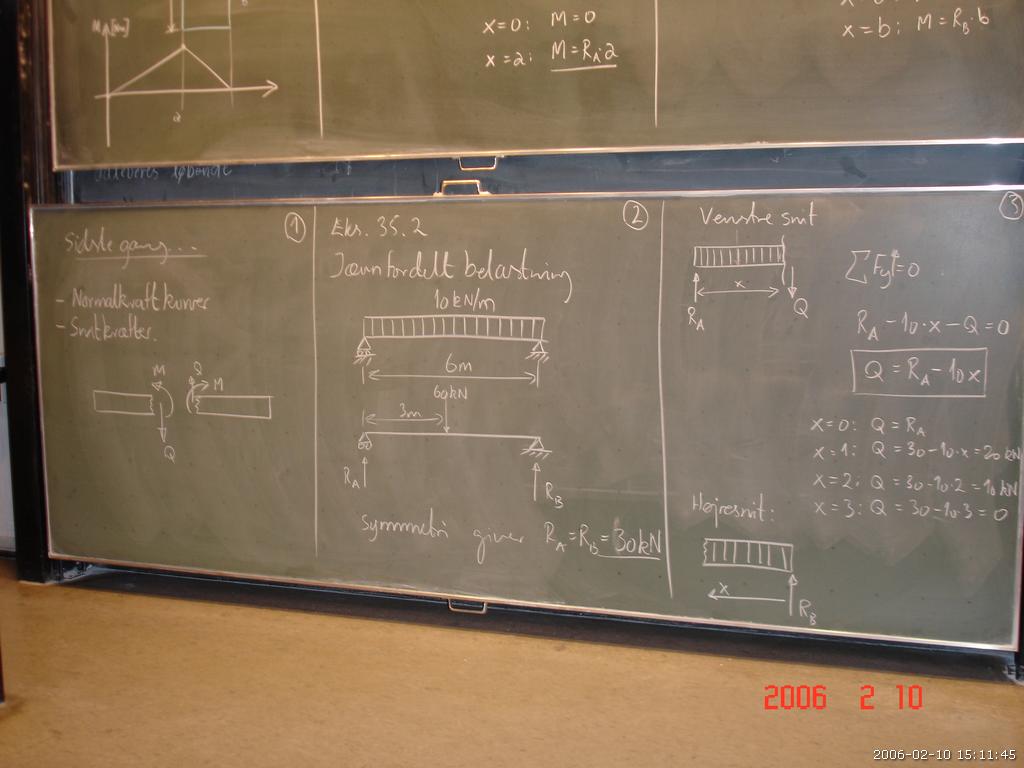 M_A [Nm]
a
x=0: M=0
x=a: M=R_A·a
x=b: M=R_B·b
1
Sidste gang...
- Normalkraftkurver
- Snitkræfter.
M
Q
Q
M
2
Eks. 35.2
Jævnt fordelt belastning
10 kN/m
6m
60kN
3m
R_A
R_B
Symmetri giver R_A=R_B=30kN
3
Venstre snit
x
R_A
Q
∑Fy↑=0
R_A-10·x-Q=0
Q=R_A-10x
x=0: Q=R_A
x=1: Q=30-10·x=20kN
x=2: Q=30-10·2=10kN
x=3: Q=30-10·3=0
Højresnit:
x
R_B
2006 2 10
2006-02-10 15:11:45